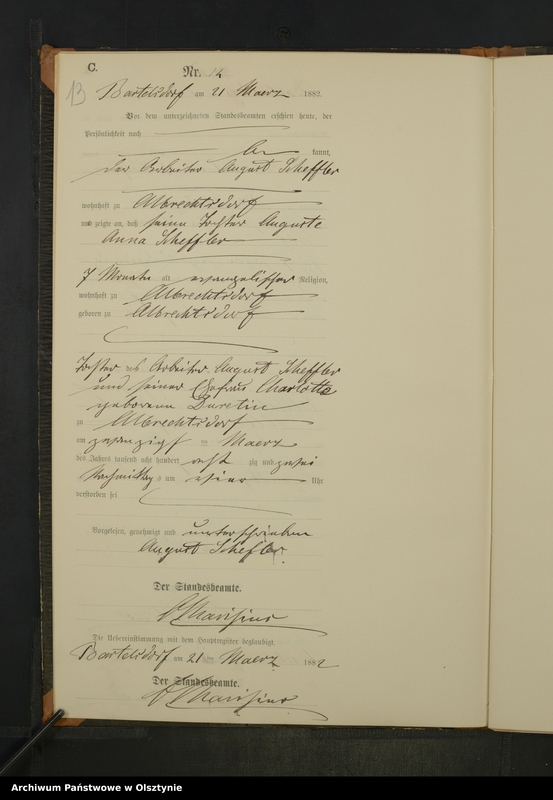 C.
Nr. 12
13
Bartelsdorf am 21 Maerz 1882.
Vor dem unterzeichneten Standesbeamten erschien heute, der
Persönlichkeit nach
be kannt,
der Arbeiter August Scheffler
wohnhaft zu Albrechtsdorf
und zeigte an, daß seine Tochter Auguste
Anna Scheffler
7 Monate alt evangelischer Religion,
wohnhaft zu Albrechtsdorf
geboren zu Albrechtsdorf
Tochter des Arbeiter August Scheffler
und seiner Ehefrau Charlotte
geborene
zu Albrechtsdorf
am zwanzigst en Maerz
des Jahres tausend acht hundert acht zig und zwei
Nachmittag s um vier Uhr
verstorben sei
Vorgelesen, genehmigt und unterschrieben
August Schefler.
Der Standesbeamte.
Die Uebereinstimmung mit dem Hauptregister beglaubigt.
Bartelsdorf am 21 Maerz 1882
Der Standesbeamte.
Archiwum Państwowe w Olsztynie